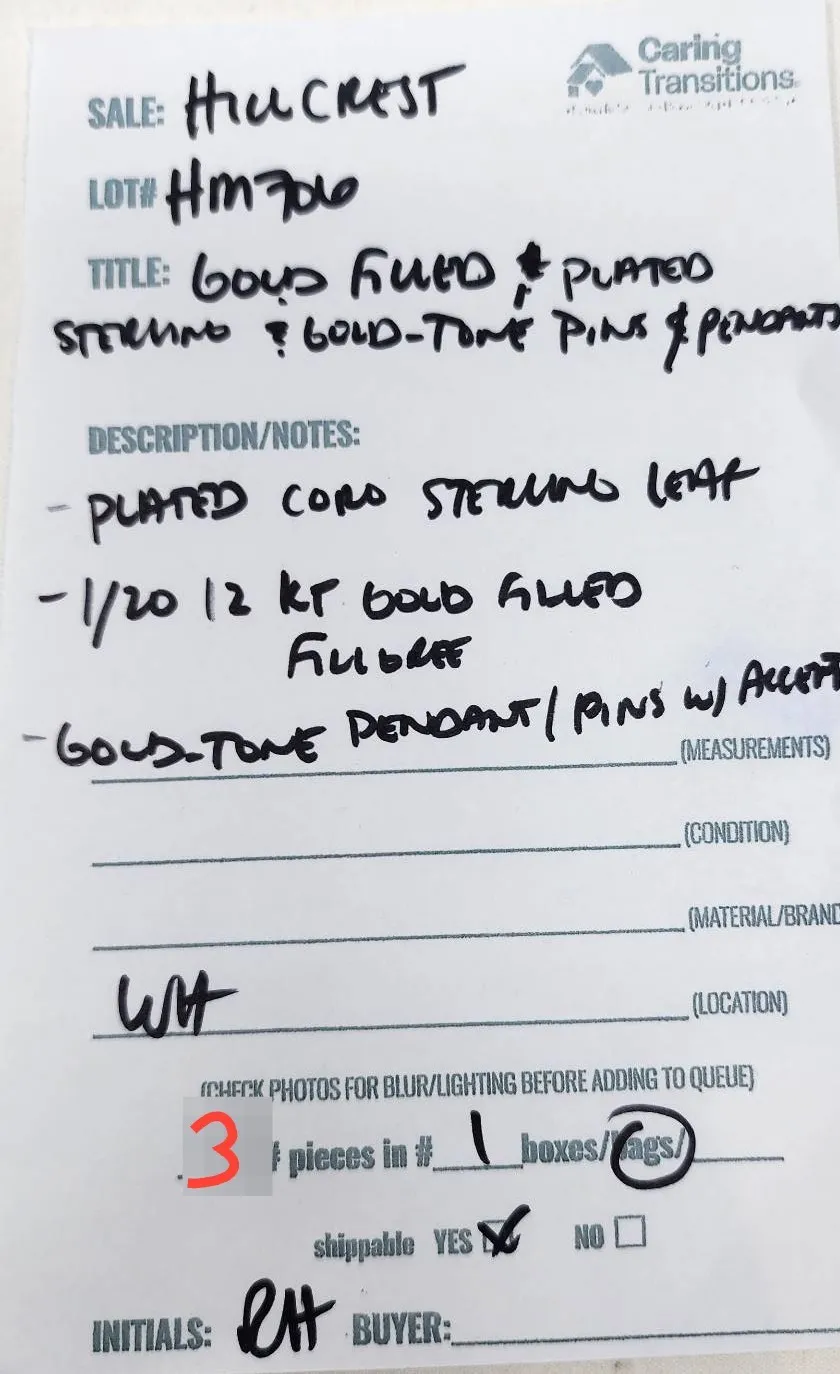 Caring
Transitions
SALE: HILLCREST
LOT# HM706
TITLE: GOLD FILLED & PLATED
STERLING & GOLD-TONE PINS & PENDANTS
DESCRIPTION/NOTES:
- PLATED CORO STERLING LEAF
- 1/20 12 KT GOLD FILLED
FILIGREE
- GOLD-TONE PENDANT/PINS W/ ACCENT
(MEASUREMENTS)
(CONDITION)
(MATERIAL/BRAND
WH (LOCATION)
(CHECK PHOTOS FOR BLUR/LIGHTING BEFORE ADDING TO QUEUE)
3 # pieces in # 1 boxes/bags/
shippable YES NO
INITIALS: RH BUYER: